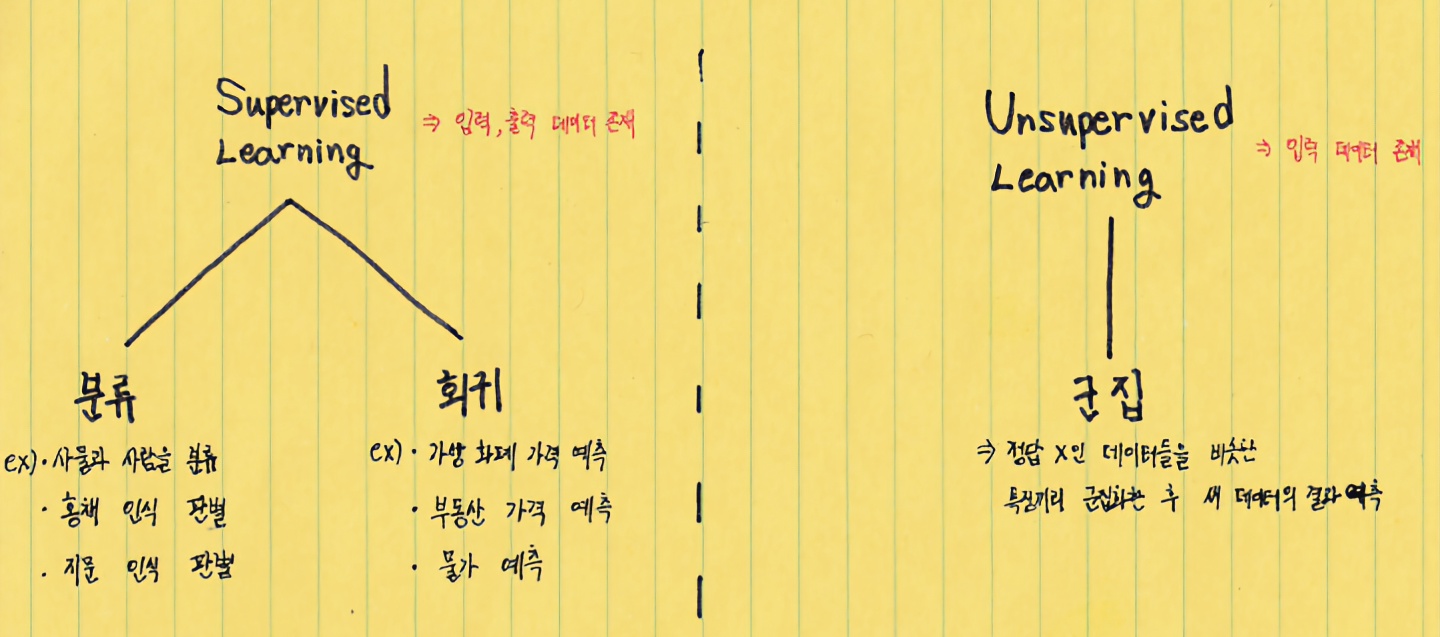 Supervised
Learning
⇒ 입력, 출력 데이터 존재
분류
ex)· 사물과 사람을 분류
· 홍채 인식 판별
· 지문 인식 판별
회귀
ex)· 가상 화폐 가격 예측
· 부동산 가격 예측
· 물가 예측
Unsupervised
Learning
⇒ 입력 데이터 존재
군집
⇒ 정답 X인 데이터들을 비슷한
특징끼리 군집화한 후 새 데이터의 결과 예측